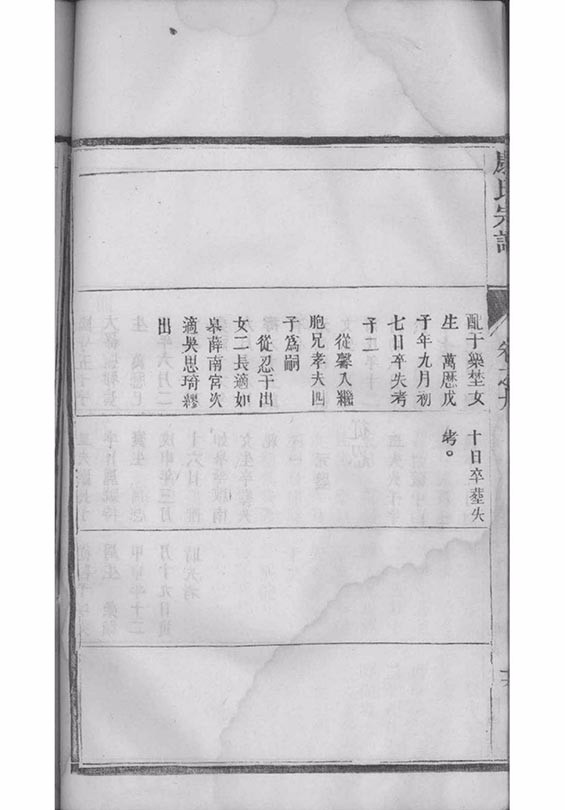 氏宗譜
卷之九
配于樂埜女
生　萬厯戊
子年九月初
七日卒失考
子二
從馨入繼
胞兄孝夫四
子爲嗣
從忍于出
女二長適如
皋薛南宮次
適吳思琦繆
出
十日卒塟失
考。